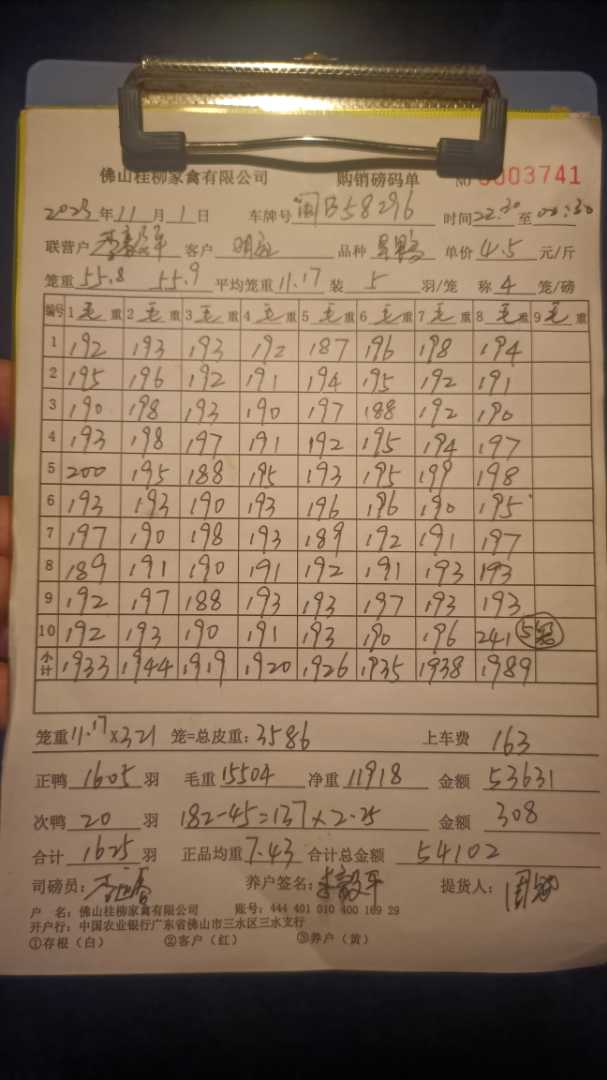 佛山桂柳家禽有限公司 购销磅码单 NO 0003741
2023年11月1日 车牌号 闽B58296 时间22:30至00:30
联营户 客户 品种 单价 4.5 元/斤
笼重 55.8 55.9 平均笼重 11.17 装 5 羽/笼 称 4 笼/磅
编号 1毛重 2毛重 3毛重 4毛重 5毛重 6毛重 7毛重 8毛重 9毛重
1 192 193 193 192 187 196 198 194
2 195 196 192 191 194 195 192 191
3 190 198 193 190 197 188 192 190
4 193 198 197 191 192 195 194 197
5 200 195 188 195 193 195 199 198
6 193 193 190 193 196 196 190 195
7 197 190 198 193 189 192 191 197
8 189 191 190 191 192 191 193 193
9 192 197 188 193 193 197 193 193
10 192 193 190 191 193 190 196 241 5笼
小计 1933 1944 1919 1920 1926 1935 1938 1989
笼重 11.17×321 笼=总皮重:3586 上车费 163
正鸭 1605 羽 毛重 15504 净重 11918 金额 53631
次鸭 20 羽 182-45=137×2.25 金额 308
合计 1625 羽 正品均重 7.43 合计总金额 54102
司磅员: 养户签名:李毅平 提货人:
户 名:佛山桂柳家禽有限公司 账号:444 401 010 400 169 29
开户行:中国农业银行广东省佛山市三水区三水支行
①存根(白) ②客户(红) ③养户(黄)